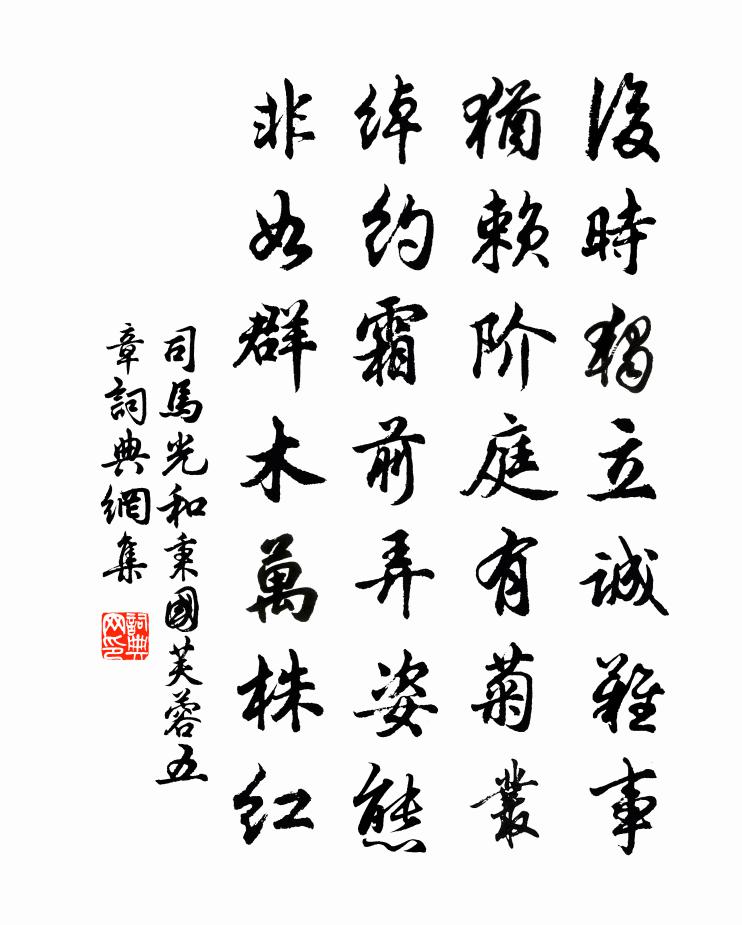 後時獨立誠難事
猶賴阶庭有菊叢
綽約霜前弄姿態
非如群木萬株紅
司馬光和秉國芙蓉五
章詞典網集
詞典
网印